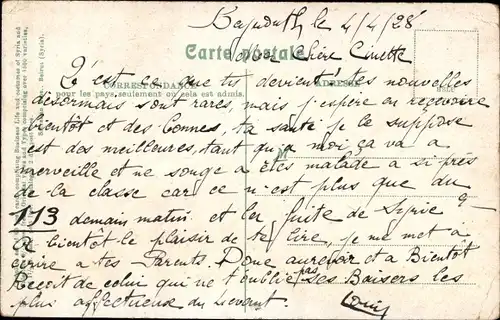 le 4/4/28
Carte postale
Chère Ginette
Qu'est ce que tu devient tes nouvelles
CORRESPONDANCE
ADRESSE
pour les pays, seulement où cela est admis.
désormais sont rares, mais j'espère en recevoire
bientôt et des bonnes, ta santé je le suppose
est des meilleures, tant qu'a moi ça va a
merveille et ne songe a êtes malade a si près
de la classe car ce n'est plus que du
113 demain matin et la fuite de Syrie
A bientôt le plaisir de te lire, je me met a
écrire a tes Parents. Donc aurevoir et a Bientôt
Reçoit de celui qui ne t'oublie pas les Baisers les
plus affectueux du Levant.
Louis